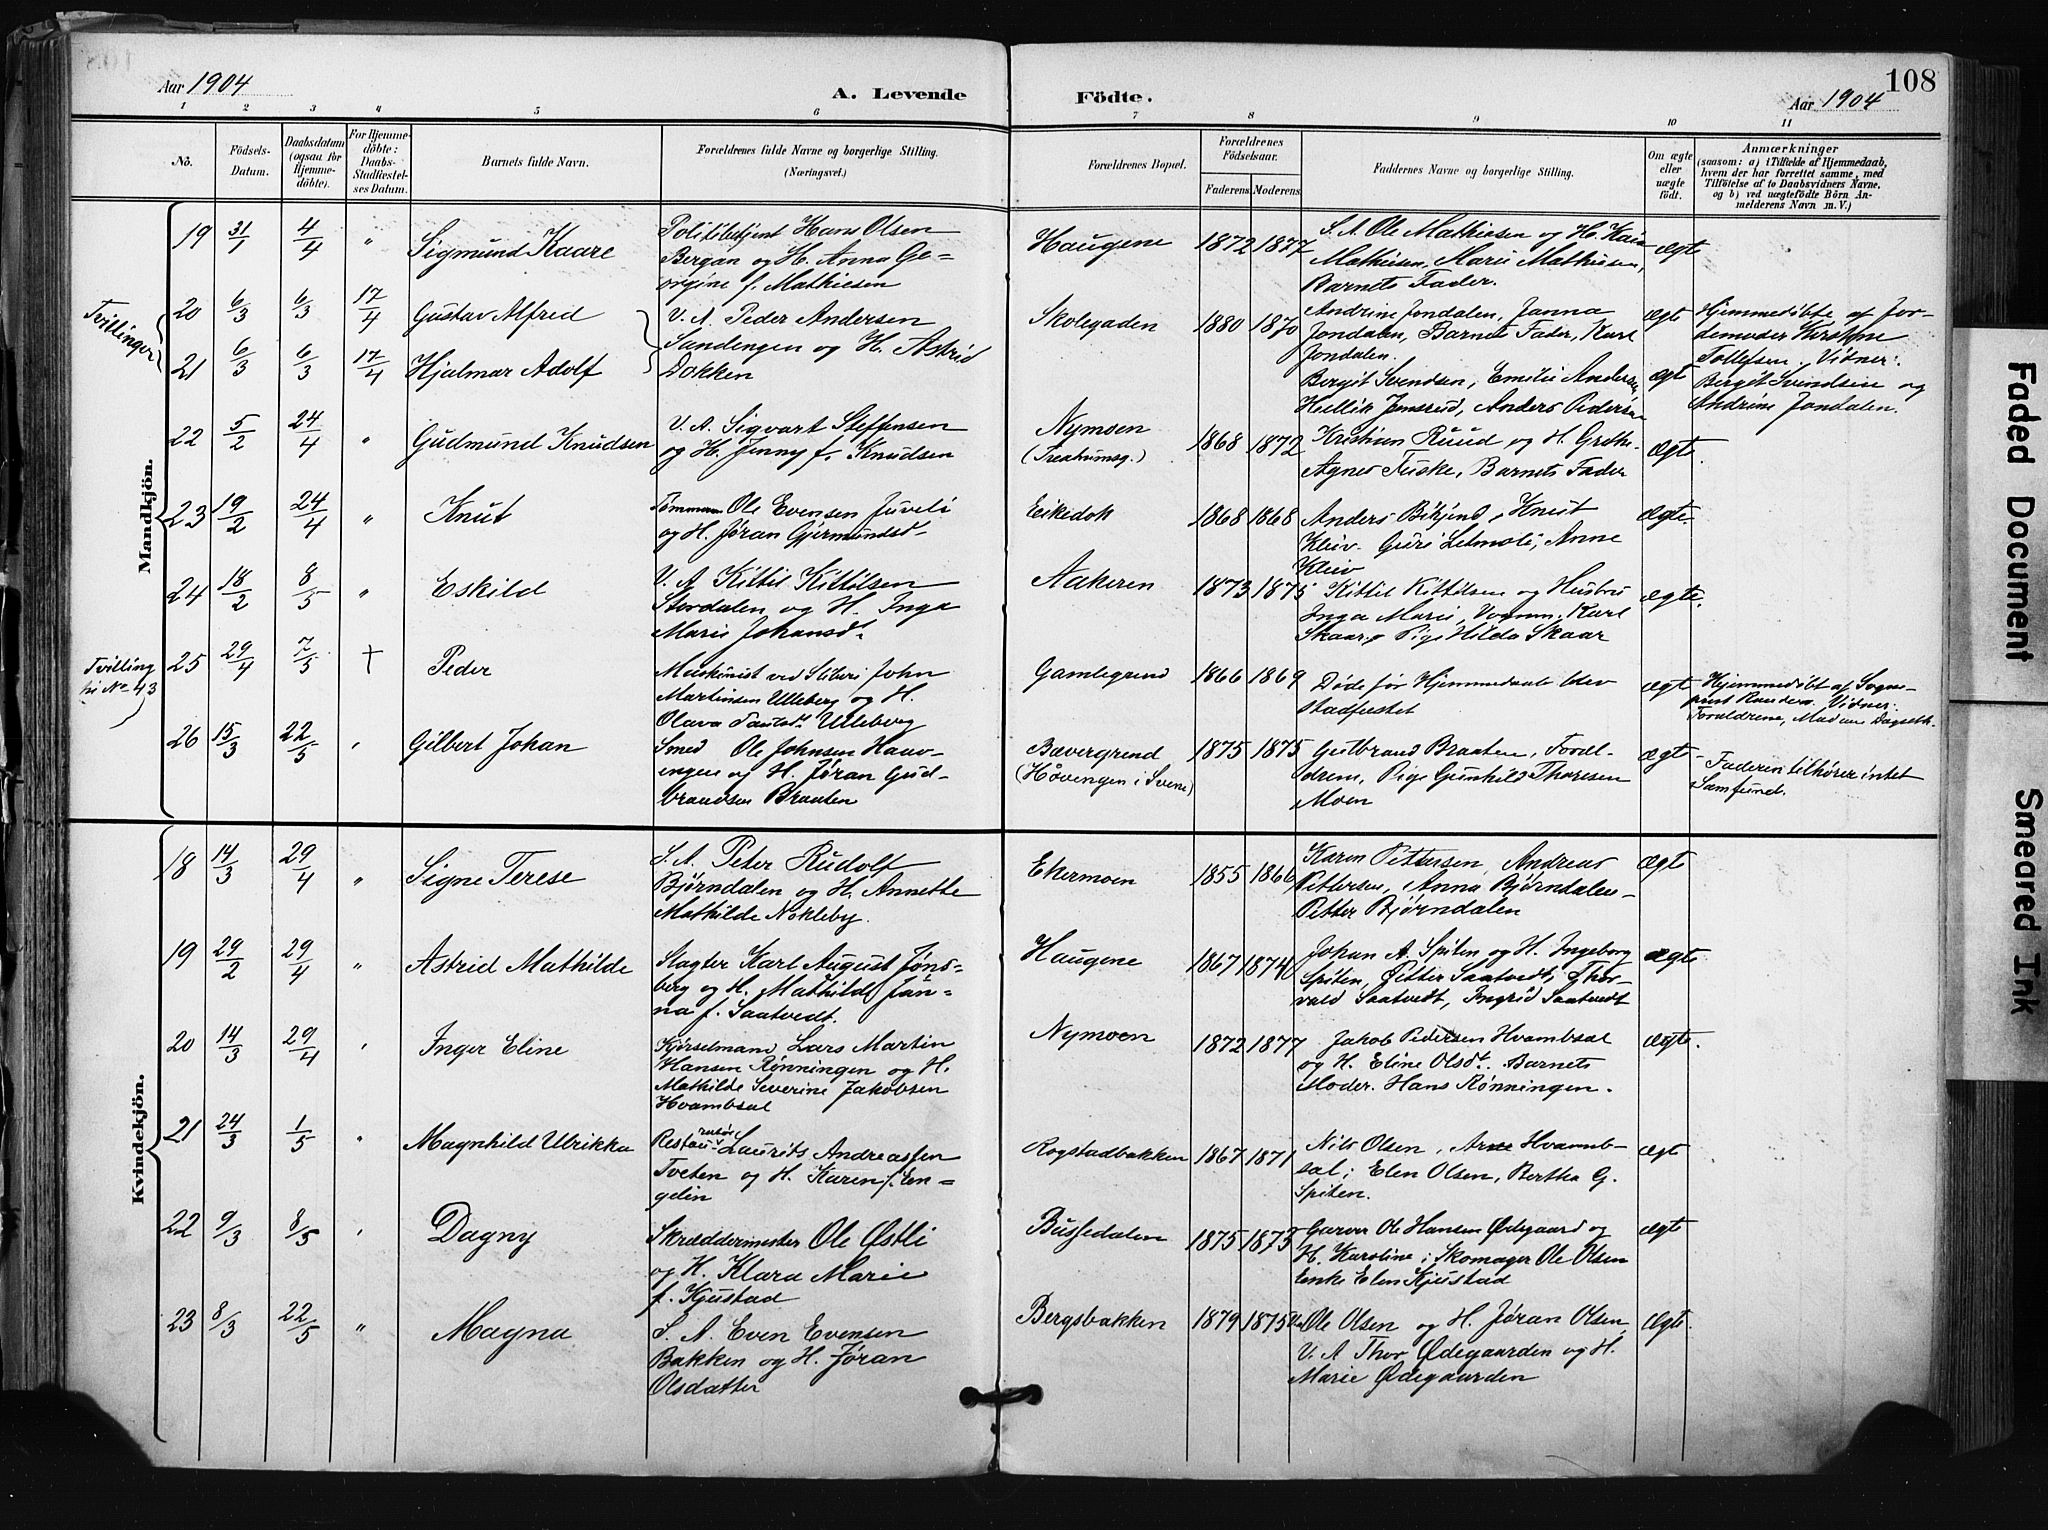 108
Aar 1904
A. Levende
Födte.
Aar 1904
1 2 3 4 5 6 7 8 9 10 11
No.
Födsels-Datum.
Daabsdatum (ogsaa for Hjemme-döbte).
For Hjemme-döbte: Daabs-Stadfæstel-ses Datum.
Barnets fulde Navn.
Forældrenes fulde Navne og borgerlige Stilling.
(Næringsvei.)
Forældrenes Bopæl.
Forældrenes Födselsaar.
Faderens. Moderens.
Faddernes Navne og borgerlige Stilling.
Om ægte eller uægte födt.
Anmærkninger
(saasom: a) i Tilfælde af Hjemmedaab, hvem der har forrettet samme, med Tilföielse af to Daabsvidners Navne, og b) ved uægtefödte Börn Anmelderens Navn m. V.)
Mandkjön.
19 31/1 4/4 " Sigmund Kaare
Politibetjent Hans Olsen
Bergan og H. Anna Ge-
orgine f. Mathiesen
Haugene 1872 1877
S. A. Ole Mathiesen og H. Karen
Mathiesen, Marie Mathiesen,
Barnets Fader.
ægte
Tvillinger
20 6/3 6/3 17/4 Gustav Alfred
21 6/3 6/3 17/4 Hjalmar Adolf
V. A. Peder Andersen
Sandengen og H. Astrid
Dokken
Skolegaden 1880 1870
Andrine Jondalen, Janna
Jondalen, Barnets Fader, Karl
Jondalen.
Bergit Svendsen, Emilie Andersen
Hellik Jemsrud, Anders Pedersen
ægt
ægt
Hjemmedöbte af Jor-
demoder Kirstine
Tollefsen. Vidner:
Bergit Svendsen og
Andrine Jondalen.
22 5/2 24/4 " Gudmund Knudsen
V. A. Sigvart Steffensen
og H. Jenny f. Knudsen
Nymoen
1868 1872
Kristian Ruud og H. Grethe
Agnes Fuske, Barnets Fader
Ægte.
23 19/2 24/4 " Knut
Tømmerm Ole Evensen Juveli
og H. Jøran Gjermundsd.
Eikedok 1868 1868
Anders Bikjend, Knut
Kleiv. Guri Letmoli, Anne
Kleiv
Ægte.
24 18/2 8/5 " Eskild
V. A. Kittil Kittilsen
Stordalen og H. Inga
Marie Johansdt.
Aakeren 1873 1875
Kittil Kittilsen og Hustru
Inga Marie, Karl
Skaar, Pige Hilda Skaar
ægte.
Tvilling
til No 43
25 29/4 7/5 † Peder
Maskinist ved Sliberi John
Martinsen Ulleberg og H.
Olava Ulleberg
Gamlegrend 1866 1869
Døde før Hjemmedaab blev
stadfæstet
ægt
Hjemmedöbt af Sogne-
prest Randers. Vidner:
Forældrene, Madam Dagseth.
26 15/3 22/5 " Gilbert Johan
Smed Ole Johnsen Haav-
ingen og H. Jøran Gud-
brandsen Braaten
Bævergrend
(Høvengen i Svene)
1875 1875
Gutbrand Braaten, Foræl-
drene, Pige Gunhild Thoresen
Moen
ægt
Faderen tilhører intet
Samfund.
Kvindekjön.
18 14/3 29/4 " Signe Terese
S. A. Peter Rudolf
Bjørndalen og H. Annette
Mathilde Nokleby.
Ekermoen 1855 1866
Karen Pettersen, Andreas
Pettersen, Anna Bjørndalen-
Petter Bjørndalen
Ægte
19 29/2 29/4 " Astrid Mathilde
Slagter Karl August Jøns-
berg og H. Mathilde Jan-
na f. Saatvedt.
Haugene 1867 1874
Johan A. Spiten og H. Ingeborg
Spiten, Petter Saatvedt, Thor-
vald Saatvedt, Ingrid Saatvedt
ægte
20 14/3 29/4 " Inger Eline
Kjørselmand Lars Martin
Hansen Rønningen og H.
Mathilde Severine Jakobsen
Hvambsal
Nymoen 1872 1877
Jakob Pedersen Hvambsal
og H. Eline Olsdt. Barnets
Moder. Hans Rønningen.
Ægte.
21 24/3 1/5 " Magnhild Ulrikka
Restauratør Laurits Andreassen
Tveten og H. Karen f. En-
gelin
Rogstadbakken 1867 1871
Nils Olsen, Arne Hvamb-
sal; Elen Olsen, Bertha G.
Spiten.
ægt
22 9/3 8/5 " Dagny
Skræddermester Ole Østli
og H. Klara Marie
f. Kjustad
Bussedalen 1875 1873
Garver Ole Hansen Ødegaard og
H. Karoline; Skomager Ole Olsen
Enke Elen Kjustad
Ægte
23 8/3 22/5 " Magna
S. A. Even Evensen
Bakken og H. Jøran
Olsdatter
Bergsbakken 1879 1875
Ole Olsen og H. Jøran Olsen,
V. A Thor Ødegaarden og H.
Marie Ødegaarden
Ægte.
Faded Document
Smeared Ink